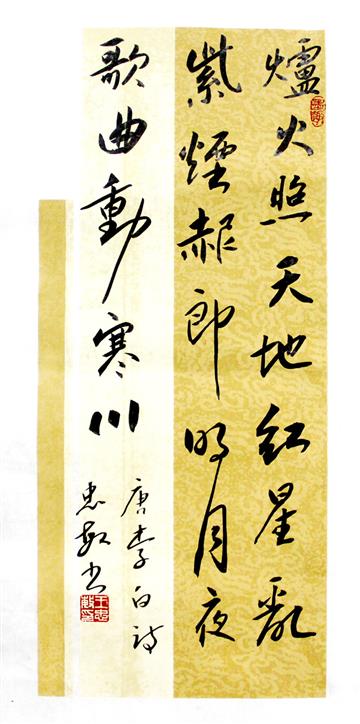 爐火照天地紅星亂
紫煙赧郎明月夜
歌曲動寒川
唐李白詩
忠敬书
王忠敬印